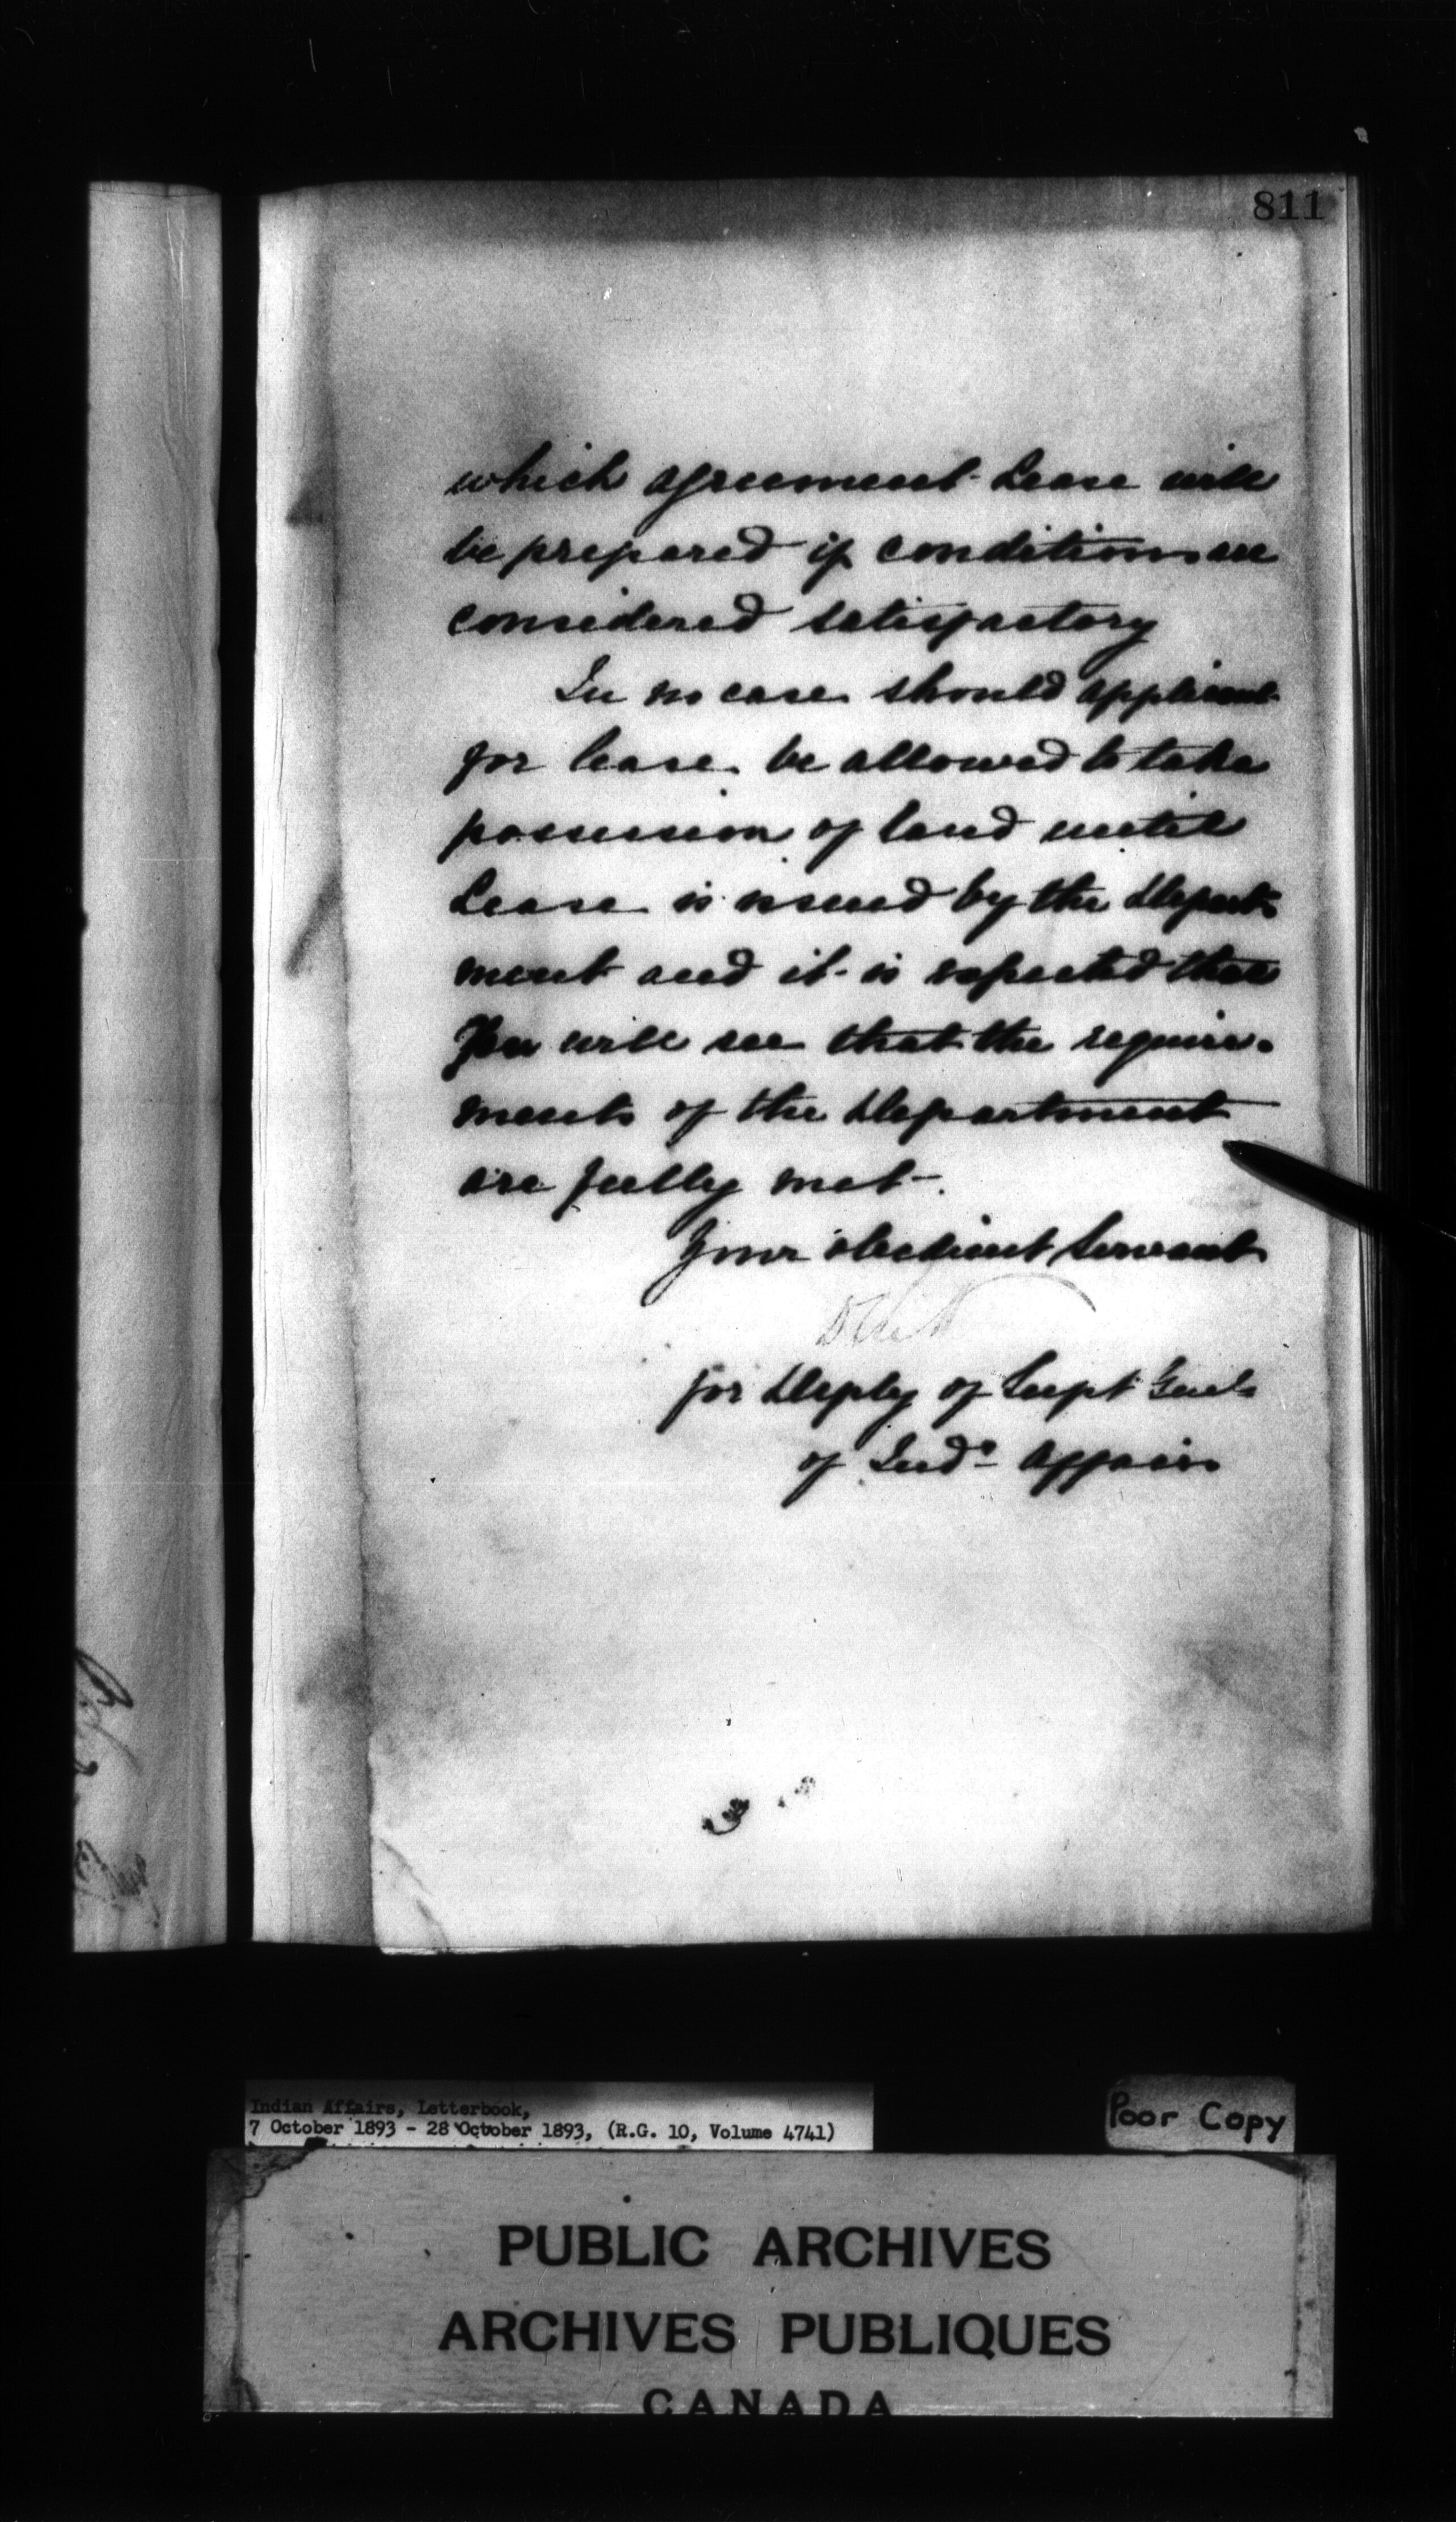 811
which agreement Lease will
be prepared if conditions are
considered satisfactory
In no case should applicant
for lease be allowed to take
possession of land until
Lease is issued by the Depart-
ment and it is expected that
you will see that the require-
ments of the Department
are fully met.
Your obedient Servant
for Depty of Supt Genl
of Indn Affairs
Indian Affairs, Letterbook,
7 October 1893 - 28 October 1893, (R.G. 10, Volume 4741)
Poor Copy
PUBLIC ARCHIVES
ARCHIVES PUBLIQUES
CANADA